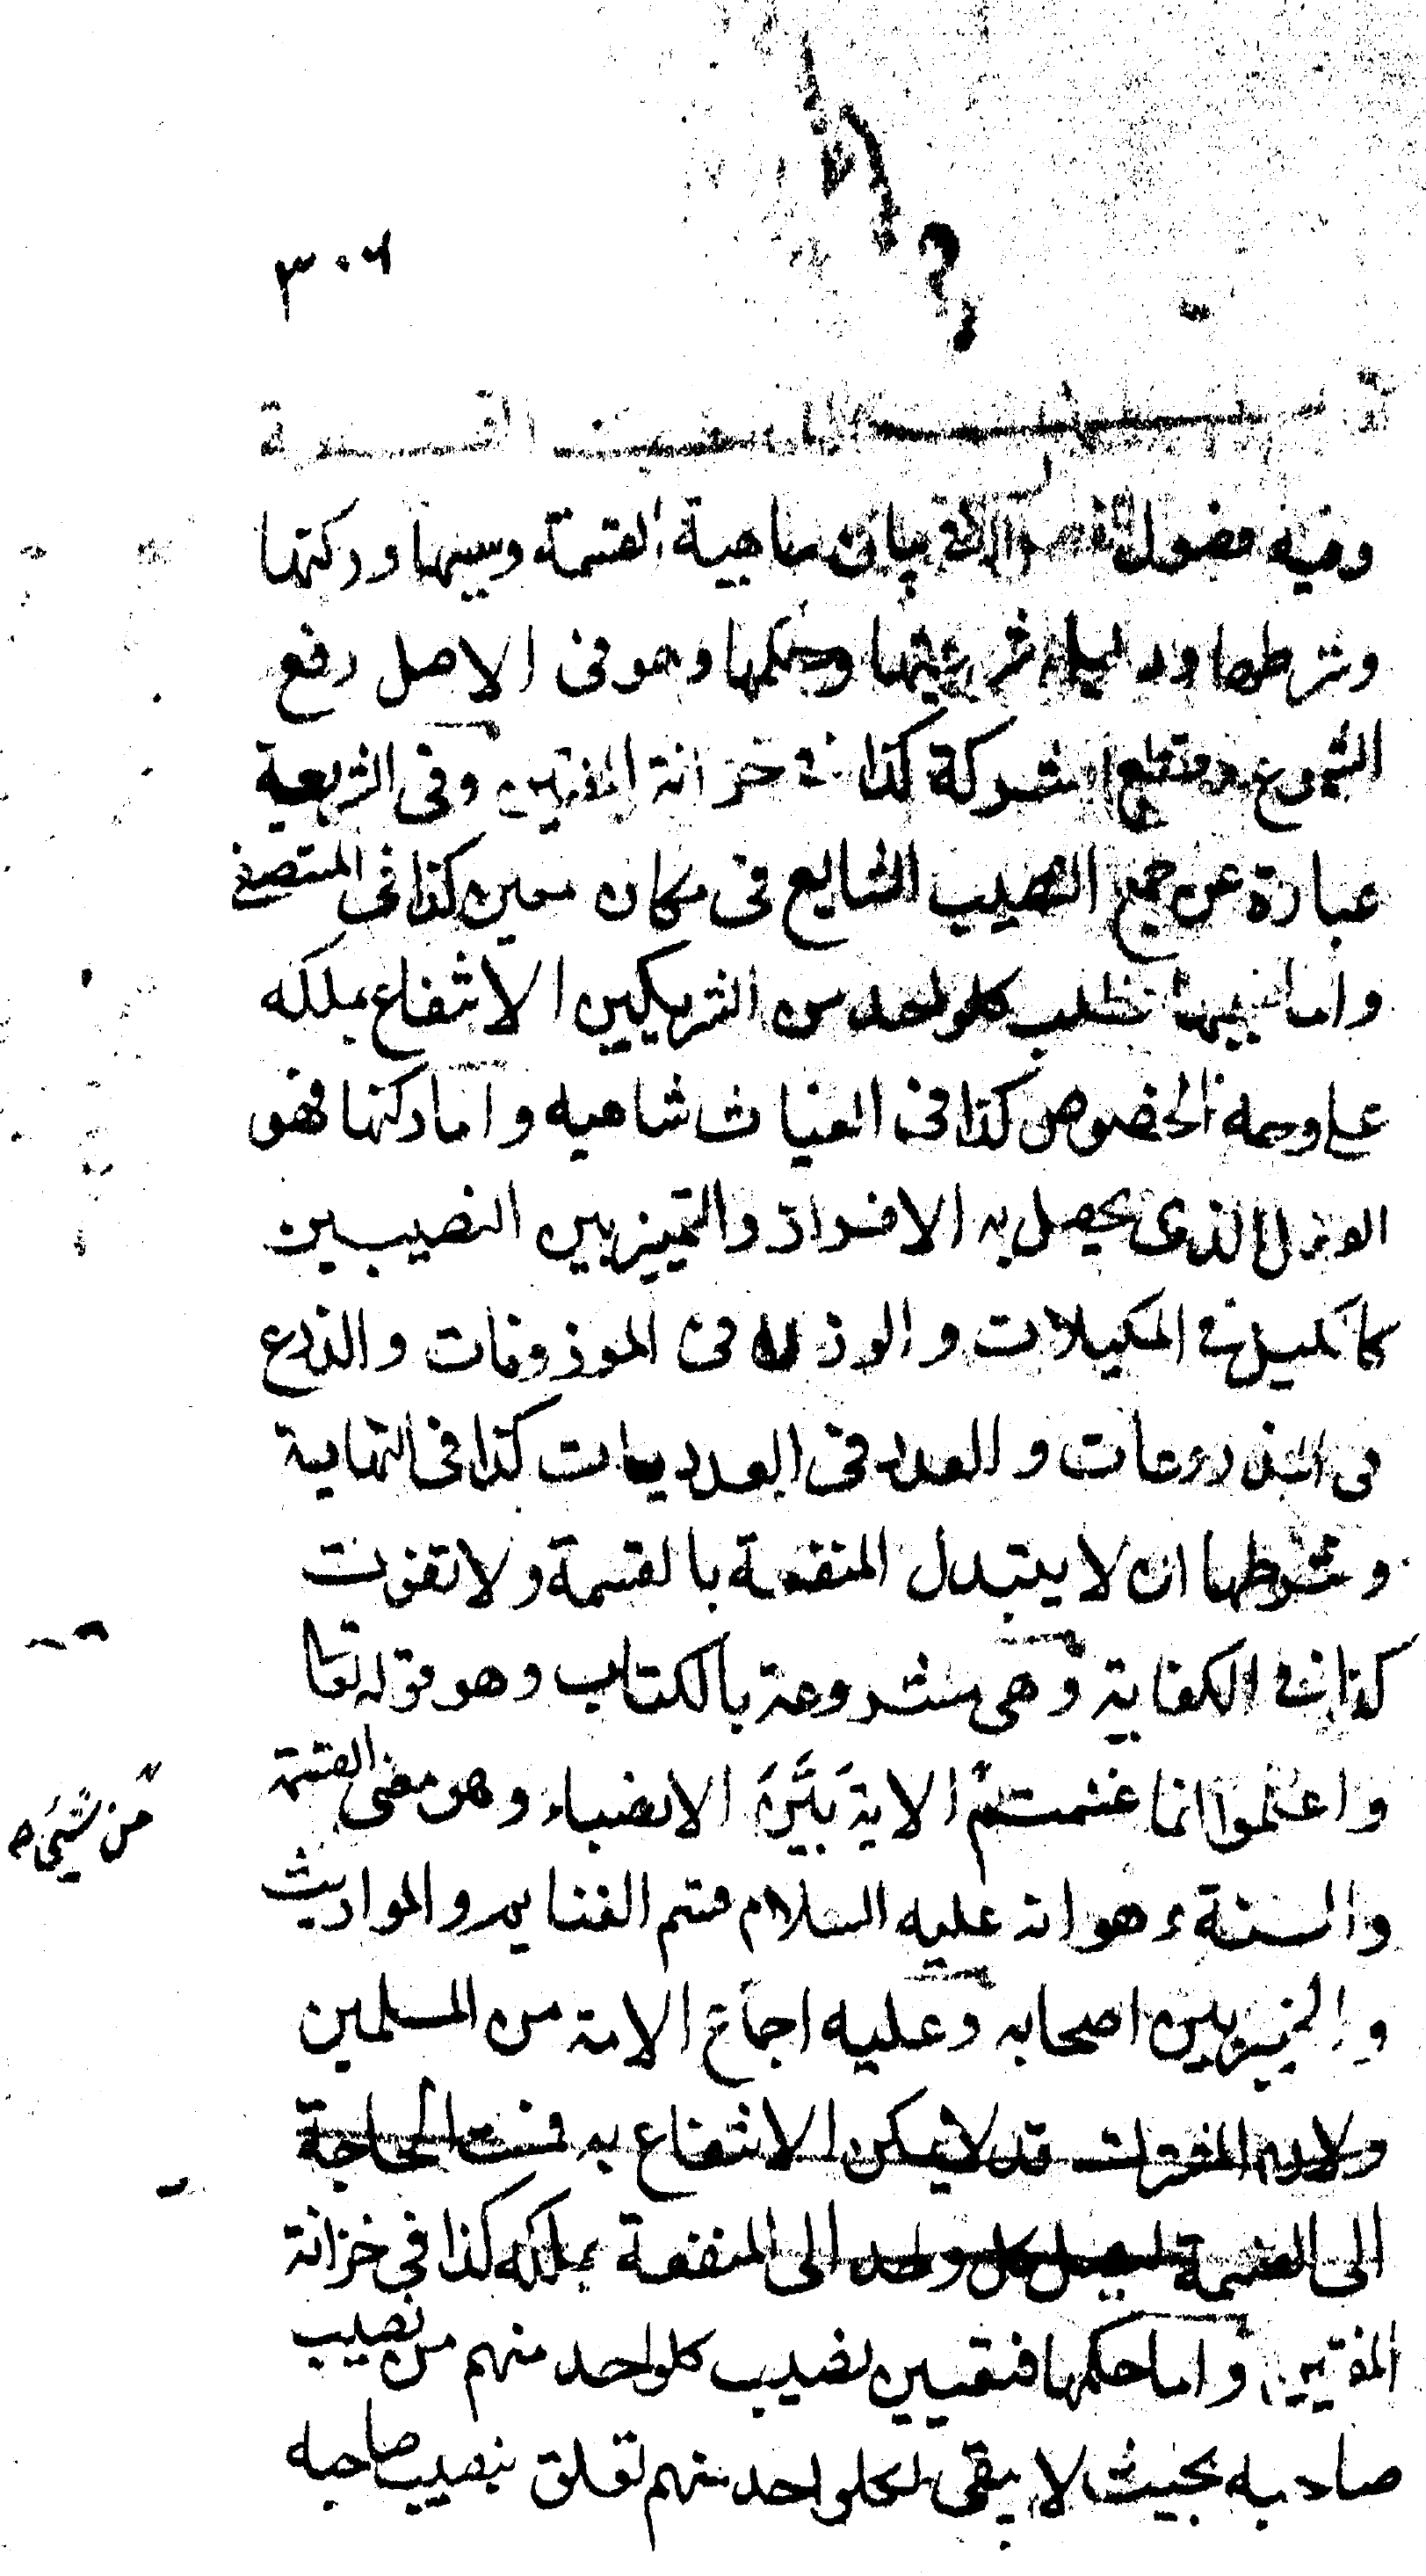 ٣٠٦
القسمة
وفيه فصول الفصل الاول في بيان ماهية القسمة وسببها وركنها
وشرطها ودليل شرعيتها وحكمها وهو في الاصل رفع
الشيوع وقطع الشركة كذا في خزانة المفتيين وفي الشريعة
عبارة عن جمع النصيب الشايع في مكان معين كذا في المتصفى
واما سببها فطلب كلواحد من الشريكين الانتفاع بملكه
علي وجه الخصوص كذا في الغياث شاهيه واما ركنها فهو
الفعل الذي يحصل به الافراز والتمييز بين النصيبين
كالكيل في المكيلات والوزن في الموزونات والذرع
في المذروعات والعدد في العدديات كذا في النهاية
وشرطها ان لا يتبدل المنفعة بالقسمة ولا تفوت
كذا في الكفاية وهي مشروعة بالكتاب وهو قوله تعا
واعلموا انما غنمتم الاية بَيَّنَ الانصباء وهو معنى القسمة
من شيىء صح
والسنة وهو انه عليه السلام قسم الغنايم والمواريث
والخيبر بين اصحابه وعليه اجماع الامة من المسلمين
ولان المشترك قد لا يمكن الانتفاع به فمست الحاجة
الى القسمة ليصل كل واحد الى المنفعة بملكه كذا في خزانة
المفتيين واما حكمها فتعيين نصيب كلواحد منهم من نصيب
صاحبه بحيث لا يبقى لكلواحد منهم تعلق بنصيب صاحبه